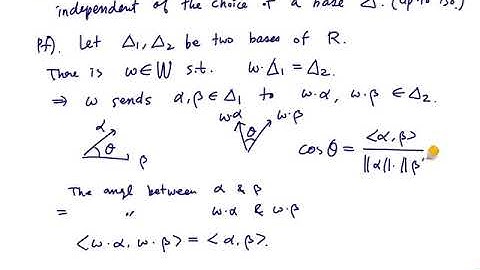 independent of the choice of a base Δ. (up to iso.)
pf). Let Δ₁, Δ₂ be two bases of R.
There is w∈W s.t. w·Δ₁ = Δ₂.
⇒ w sends α, β ∈ Δ₁ to w·α, w·β ∈ Δ₂.
α θ β w·α θ w·β cos θ = <α, β> / ‖α‖·‖β
The angl between α & β
= " w·α & w·β
<w·α, w·β> = <α, β>.